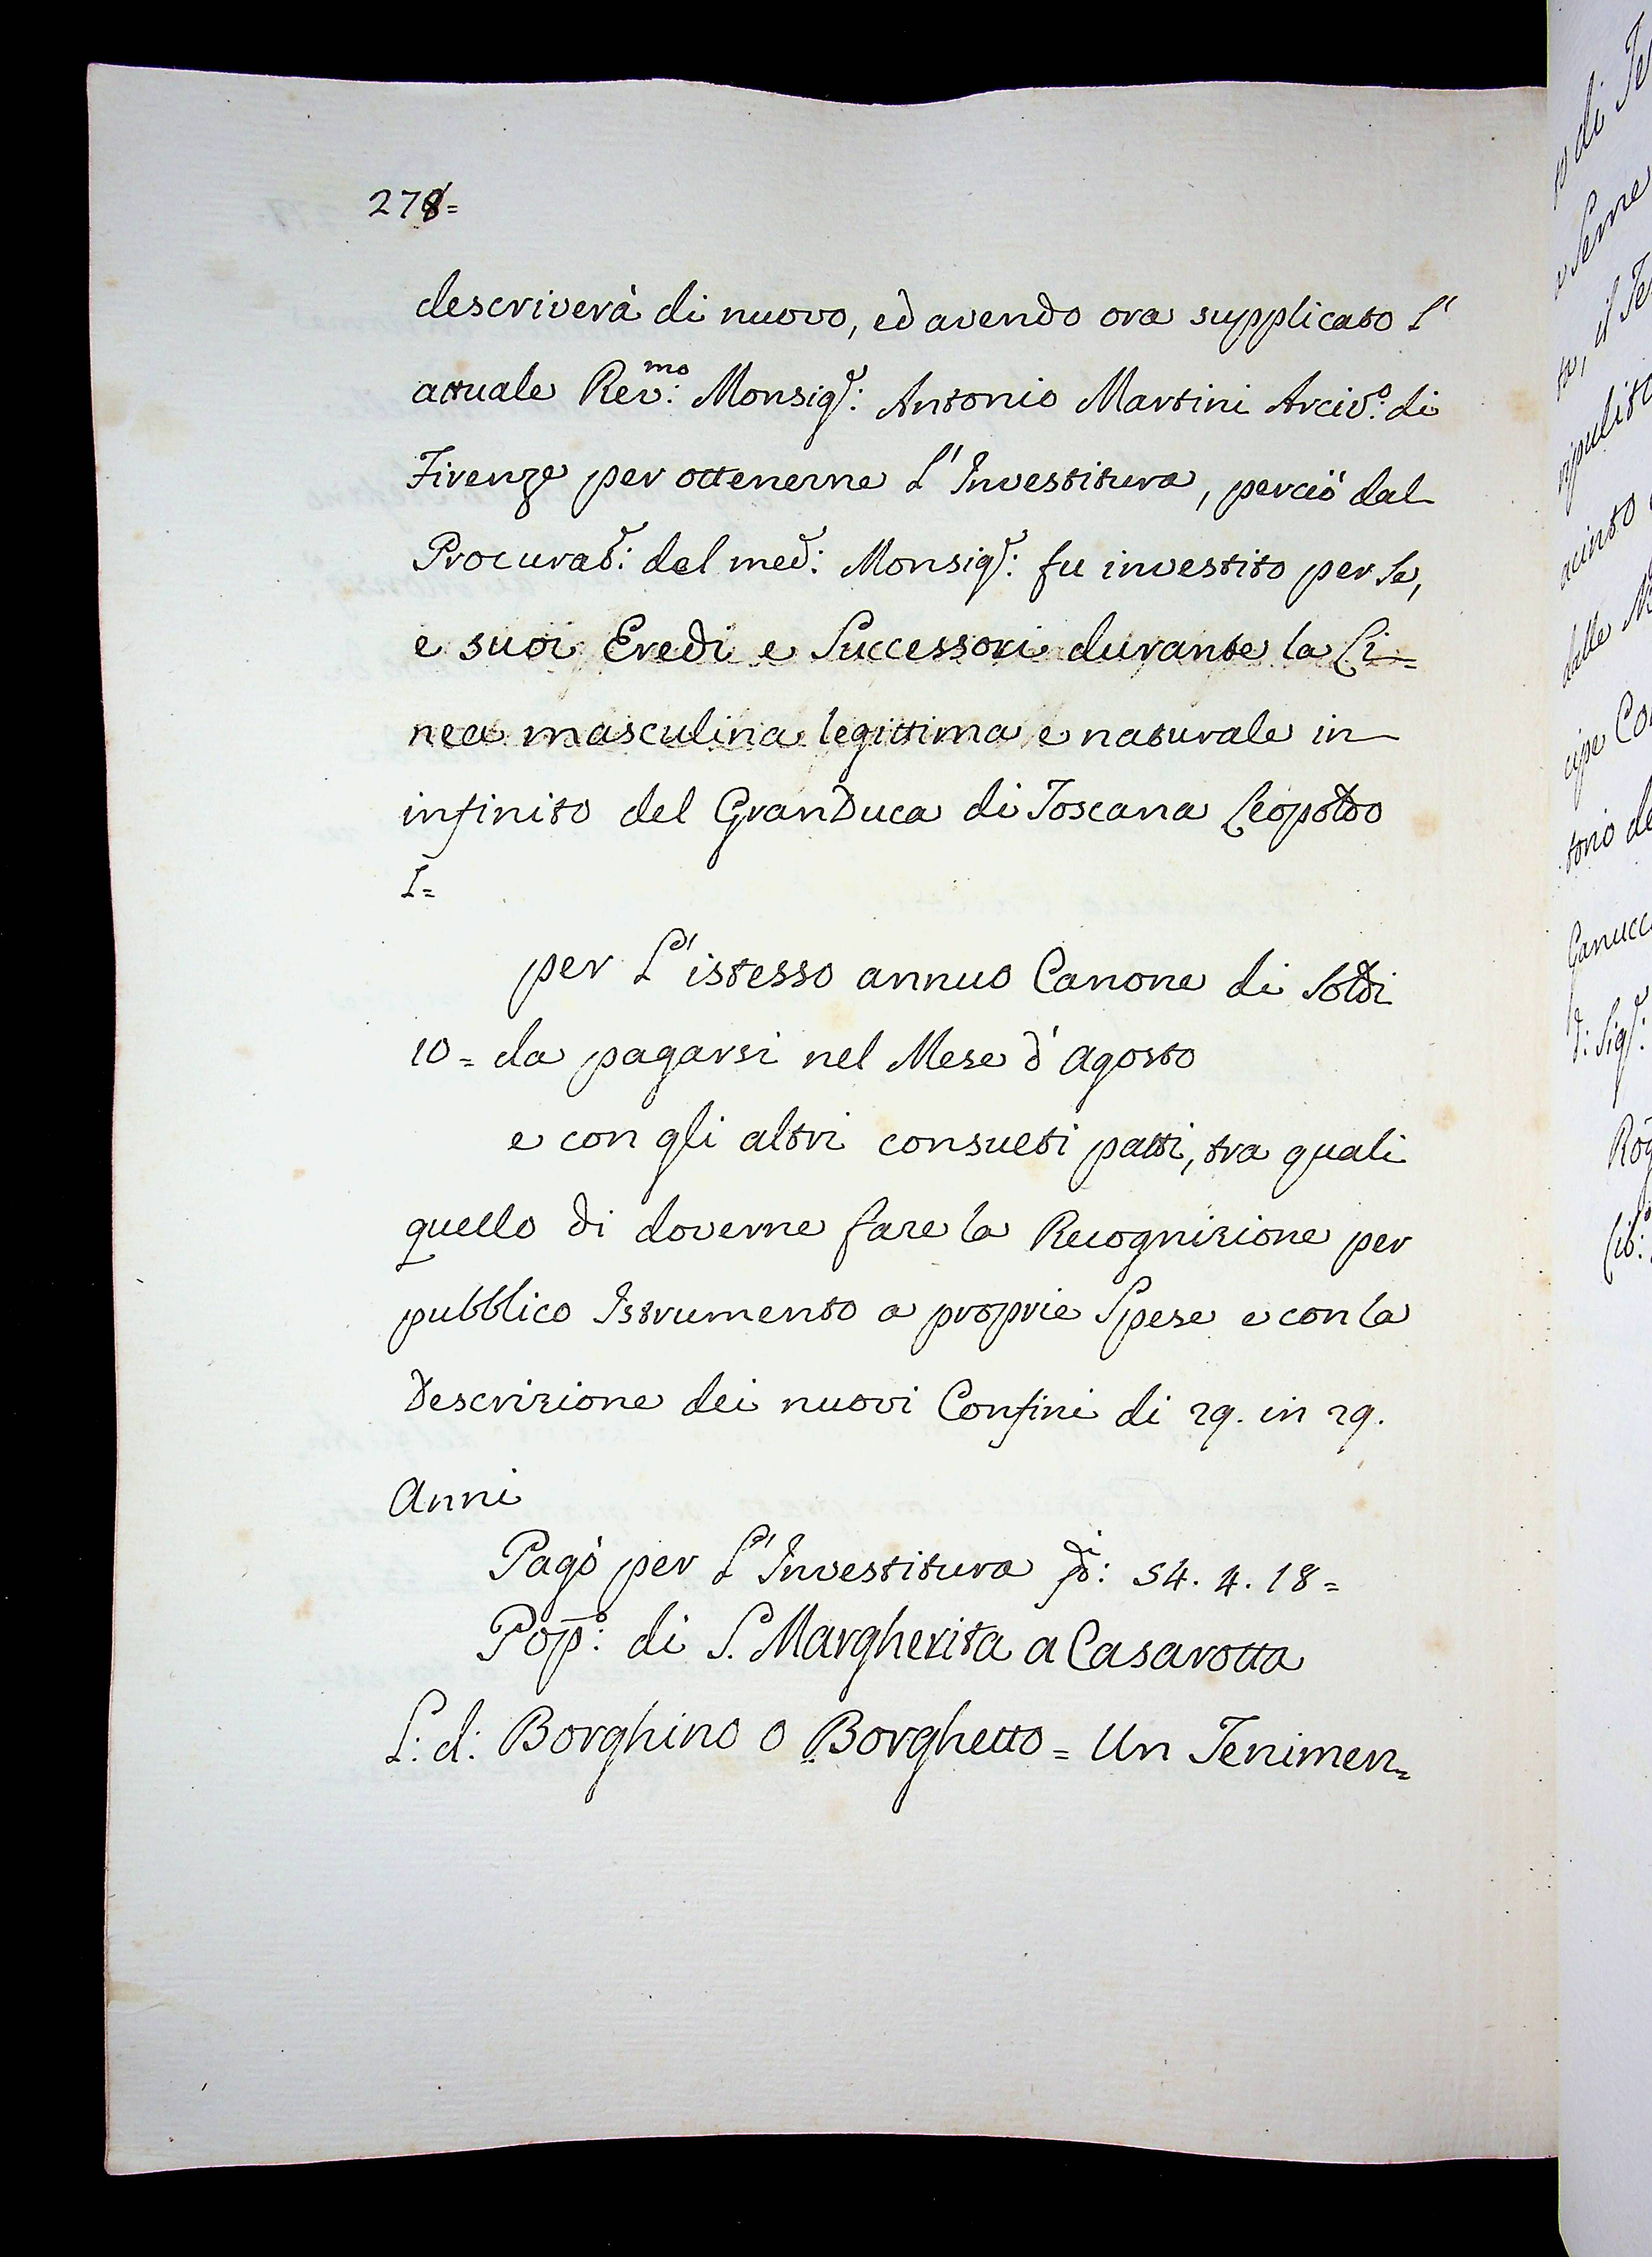 278=
descriverà di nuovo, ed avendo ora supplicato l'
attuale Rev:mo Monsig:r Antonio Martini Arciv:o di
Firenze per ottenerne l'Investitura, perciò dal
Procurat:r del med: Monsig:r fu investito per se,
e suoi Eredi e Successori durante la Li=
nea masculina legittima e naturale in
infinito del GranDuca di Toscana Leopoldo
I=
per L'istesso annuo Canone di Soldi
10= da pagarsi nel Mese d'Agosto
e con gli altri consueti patti, tra quali
quello di doverne fare la Recognizione per
pubblico Istrumento a proprie Spese e con la
Descrizione dei nuovi Confini di 29. in 29.
Anni
Pagò per L'Investitura 54. 4. 18=
Pop:o di S. Margherita a Casarotta
L: d: Borghino o Borghetto = Un Tenimen=